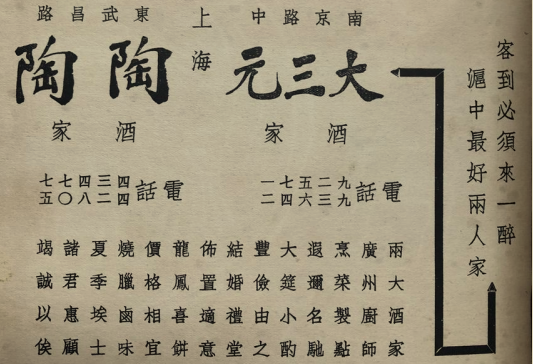 客到必須來一醉
滬中最好兩人家
南京路中
大三元
酒家
電話
九二五七一
九三六四二
上海
東武昌路
陶陶
酒家
電話
四三四七七
四二八〇五
兩大酒家
廣州廚師
烹菜製點
遐邇名馳
大筵小酌
豐儉由之
結婚禮堂
佈置適意
龍鳳喜餅
價格相宜
燒臘鹵味
夏季埃士
諸君惠顧
竭誠以俟